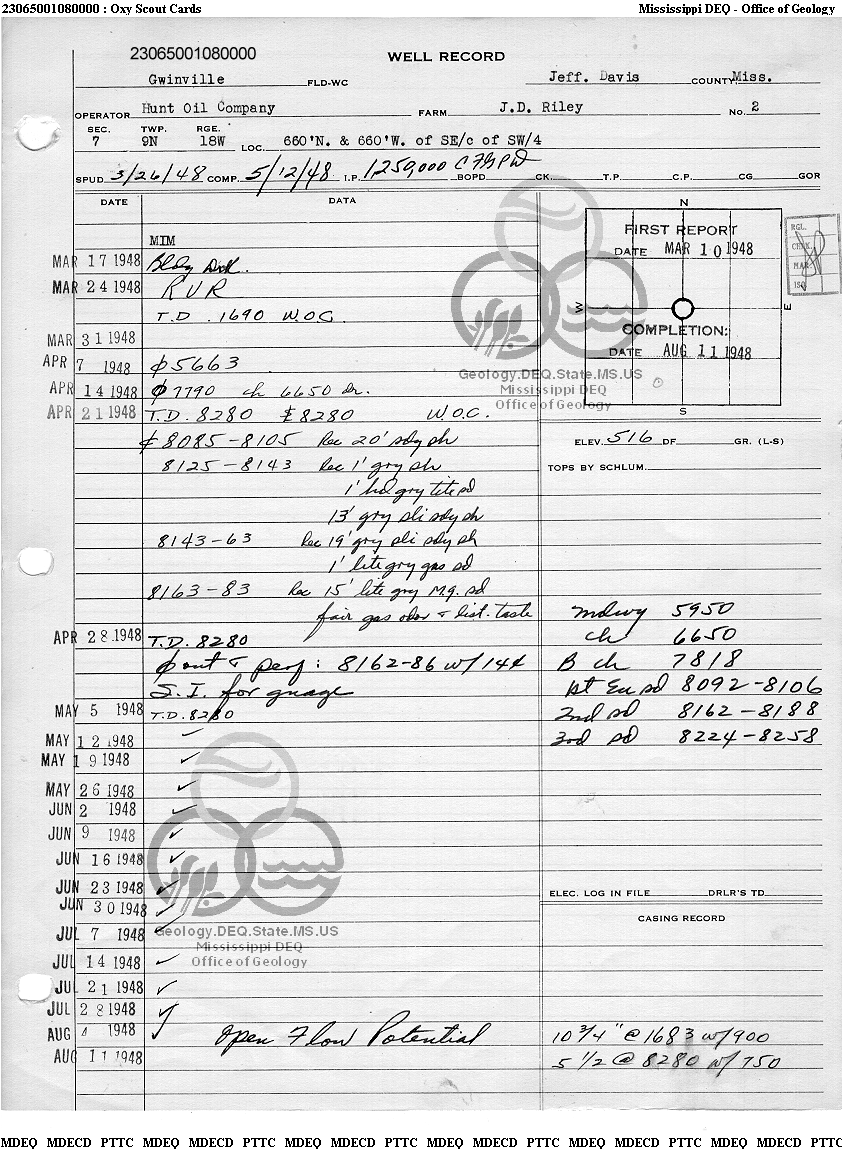 23065001080000 : Oxy Scout Cards Mississippi DEQ - Office of Geology
23065001080000 WELL RECORD
Gwinville FLD-WC Jeff. Davis COUNTY Miss.
OPERATOR Hunt Oil Company FARM J.D. Riley No. 2
SEC. TWP. RGE.
7 9N 18W LOC. 660'N. & 660'W. of SE/c of SW/4
SPUD 3/26/48 COMP. 5/12/48 I.P. 1,250,000 CFGPD BOPD CK. T.P. C.P. CG GOR
DATE DATA
N
FIRST REPORT
DATE MAR 10 1948
W E
COMPLETION:
DATE AUG 11 1948
S
RGL.
CHK.
MAP.
MIM
MAR 17 1948 Bldg Drk.
MAR 24 1948 RUR
T.D. 1690 W.O.C.
MAR 31 1948
APR 7 1948 φ 5663
APR 14 1948 φ 7790 ch 6650 Dr.
APR 21 1948 T.D. 8280 8280 W.O.C.
¢ 8085-8105 Rec 20' sdy sh
8125-8143 Rec 1' gry sh
1' hd gry tite sd
13' gry sli sdy sh
8143-63 Rec 19' gry sli sdy sh
1' lite gry gas sd
8163-83 Rec 15' lite gry M.g. sd
fair gas odor & dist. taste
APR 28 1948 T.D. 8280
perf: 8162-86 w/144
S.I. for guage
MAY 5 1948 T.D. 8280
MAY 12 1948 ✓
MAY 19 1948 ✓
MAY 26 1948 ✓
JUN 2 1948 ✓
JUN 9 1948 ✓
JUN 16 1948 ✓
JUN 23 1948 ✓
JUN 30 1948 ✓
JUL 7 1948 ✓
JUL 14 1948 ✓
JUL 21 1948 ✓
JUL 28 1948 ✓
AUG 4 1948 ✓ Open Flow Potential
AUG 11 1948
ELEV. 516 DF GR. (L-S)
TOPS BY SCHLUM.
mdwy 5950
ch 6650
B ch 7818
1st Eu sd 8092-8106
2nd sd 8162-8188
3rd sd 8224-8258
ELEC. LOG IN FILE DRLR'S TD
CASING RECORD
10 3/4" @ 1683 w/900
5 1/2 @ 8280 w/750
Geology.DEQ.State.MS.US
Mississippi DEQ
Office of Geology
Geology.DEQ.State.MS.US
Mississippi DEQ
Office of Geology
MDEQ MDECD PTTC MDEQ MDECD PTTC MDEQ MDECD PTTC MDEQ MDECD PTTC MDEQ MDECD PTTC MDEQ MDECD PTTC